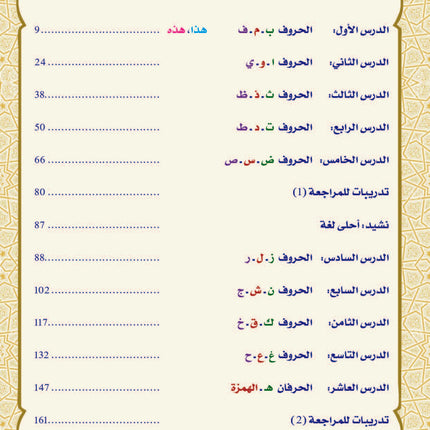 الدرس الأول: الحروف ب ـ م ـ ف هذا، هذه ........................ 9
الدرس الثاني: الحروف ا ـ و ـ ي ........................ 24
الدرس الثالث: الحروف ث ـ ذ ـ ظ ........................ 38
الدرس الرابع: الحروف ت ـ د ـ ط ........................ 50
الدرس الخامس: الحروف ض ـ س ـ ص ........................ 66
تدريبات للمراجعة (1) ........................ 80
نشيد: أحلى لغة ........................ 87
الدرس السادس: الحروف ز ـ ل ـ ر ........................ 88
الدرس السابع: الحروف ن ـ ش ـ ج ........................ 102
الدرس الثامن: الحروف ك ـ ق ـ خ ........................ 117
الدرس التاسع: الحروف غ ـ ع ـ ح ........................ 132
الدرس العاشر: الحرفان هـ ـ الهمزة ........................ 147
تدريبات للمراجعة (2) ........................ 161